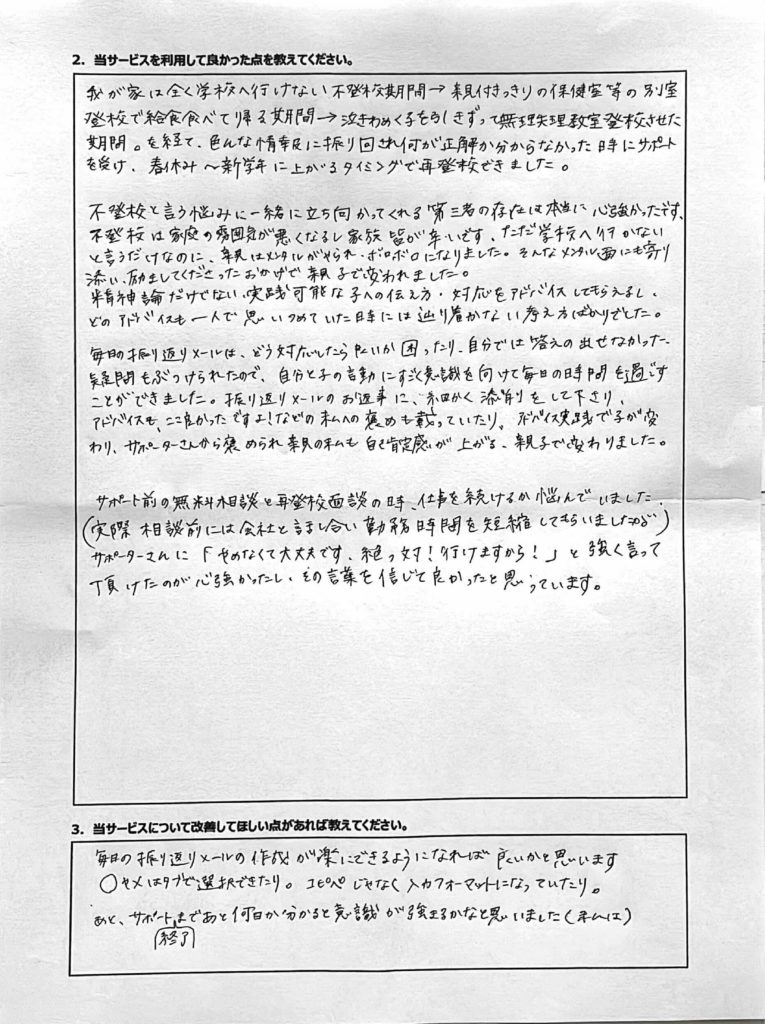 2. 当サービスを利用して良かった点を教えてください。
我が家は全く学校へ行けない不登校期間→親付きっきりの保健室等の別室
登校で給食食べて帰る期間→泣きわめく子を引きずって無理矢理教室登校させた
期間。を経て、色んな情報に振り回され何が正解か分からなかった時にサポート
を受け、春休み〜新学年に上がるタイミングで再登校できました。
不登校と言う悩みに一緒に立ち向かってくれる第三者の存在は本当に心強かったです。
不登校は家庭の雰囲気が悪くなるし家族皆が辛いです。ただ学校へ行かない
と言うだけなのに、親はメンタルがやられ、ボロボロになりました。そんなメンタル面にも寄り
添い、励ましてくださったおかげで親子で変われました。
精神論だけでない、実践可能な子への伝え方・対応をアドバイスしてもらえるし、
どのアドバイスも一人で思いつめていた時には辿り着かない考え方ばかりでした。
毎日の振り返りメールは、どう対応したら良いか困ったり、自分では答えの出せなかった
疑問もぶつけられたので、自分と子の言動にすごく意識を向けて毎日の時間を過ごす
ことができました。振り返りメールのお返事に、細かく添削をして下さり、
アドバイスも、ここ良かったですよ!などの私への褒めも載っていたり、アドバイス実践で子が変
わり、サポーターさんから褒められ親の私も自己肯定感が上がる、親子で変わりました。
サポート前の無料相談と再登校面談の時、仕事を続けるか悩んでいました。
(実際相談前には会社と話し合い勤務時間を短縮してもらいましたが)
サポーターさんに「やめなくて大丈夫です、絶っ対!行けますから!」と強く言って
頂けたのが心強かったし、その言葉を信じて良かったと思っています。
3. 当サービスについて改善してほしい点があれば教えてください。
毎日の振り返りメールの作成が楽にできるようになれば良いかと思います
○×はタブで選択できたり。コピペじゃなく入力フォーマットになっていたり。
あと、サポート終了まであと何日か分かると意識が強まるかなと思いました(私は)